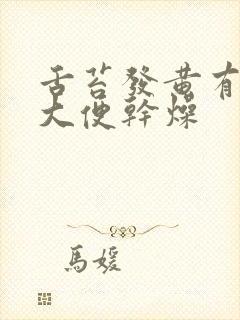 舌苔發黄有
大便幹燥
馬媛